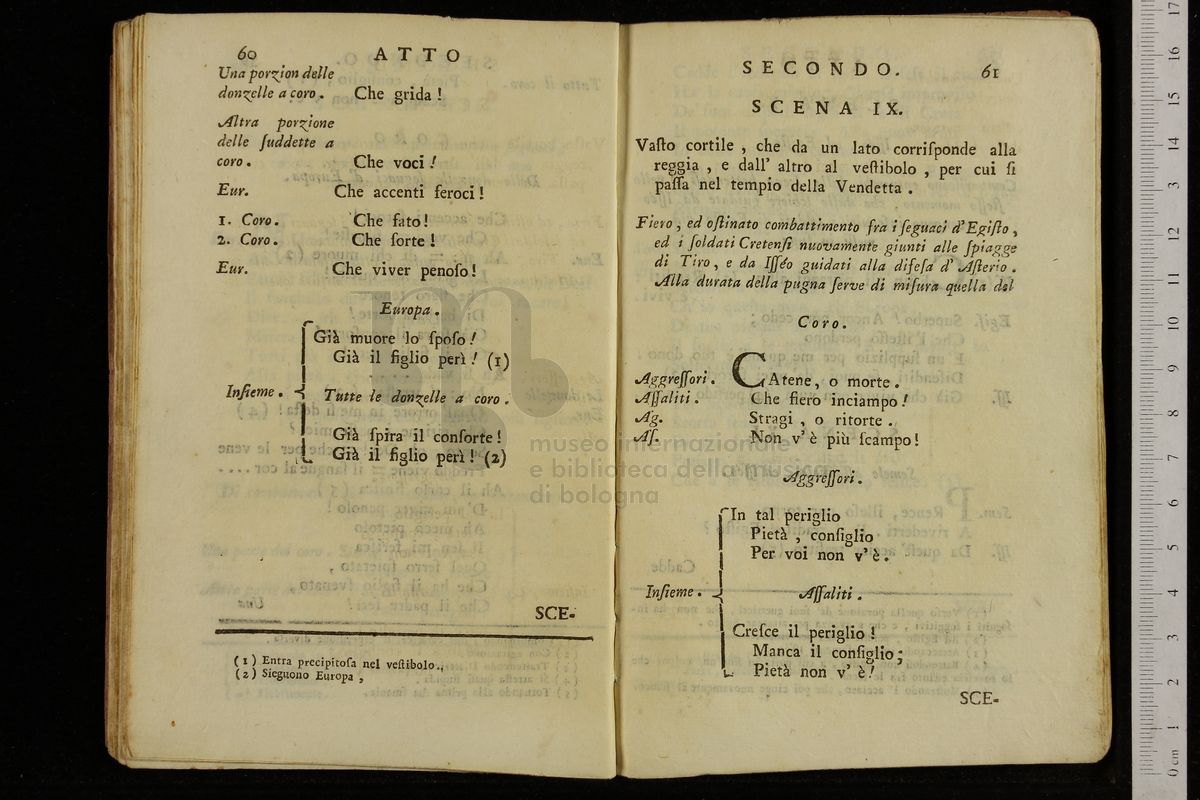 60 ATTO
Una porzion delle
donzelle a coro. Che grida!
Altra porzione
delle ſuddette a
coro. Che voci!
Eur. Che accenti feroci!
1. Coro. Che fato!
2. Coro. Che ſorte!
Eur. Che viver penoſo!
Europa.
Già muore lo ſpoſo!
Già il figlio perì! (1)
Inſieme. Tutte le donzelle a coro.
Già ſpira il conſorte!
Già il figlio perì! (2)
SCE-
(1) Entra precipitoſa nel veſtibolo.
(2) Sieguono Europa,
SECONDO. 61
SCENA IX.
Vaſto cortile, che da un lato corriſponde alla
reggia, e dall' altro al veſtibolo, per cui ſi
paſſa nel tempio della Vendetta.
Fiero, ed oſtinato combattimento fra i ſeguaci d'Egiſto,
ed i ſoldati Cretenſi nuovamente giunti alle ſpiagge
di Tiro, e da Iſſéo guidati alla difeſa d' Aſterio.
Alla durata della pugna ſerve di miſura quella del
Coro.
Aggreſſori. CAtene, o morte.
Aſſaliti. Che fiero inciampo!
Ag. Stragi, o ritorte.
Aſ. Non v'è più ſcampo!
Aggreſſori.
In tal periglio
Pietà, conſiglio
Per voi non v'è.
Inſieme. Aſſaliti.
Creſce il periglio!
Manca il conſiglio;
Pietà non v'è!
SCE-
museo internazionale
e biblioteca della musica
di bologna
0 cm 1 2 3 4 5 6 7 8 9 10 11 12 13 14 15 16 17